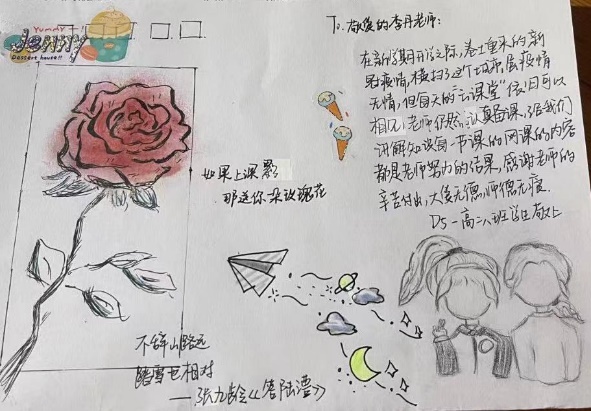 Yummy
Jenny
Dessert house!!
To. 敬爱的李丹老师:
在新学期开学之际,卷土重来的新
冠疫情,横扫了这个城市,虽疫情
无情,但每天的“云课堂”依旧可以
相见,老师仍然认真备课,给我们
讲解知识,每一节课的网课的内容
都是老师努力的结果,感谢老师的
辛苦付出,大爱无德,师德无疆.
D5-高二八班学生敬上
如果上课累
那送你朵玫瑰花
不辞山路远
踏雪也相过
——张九龄《答陆澧》